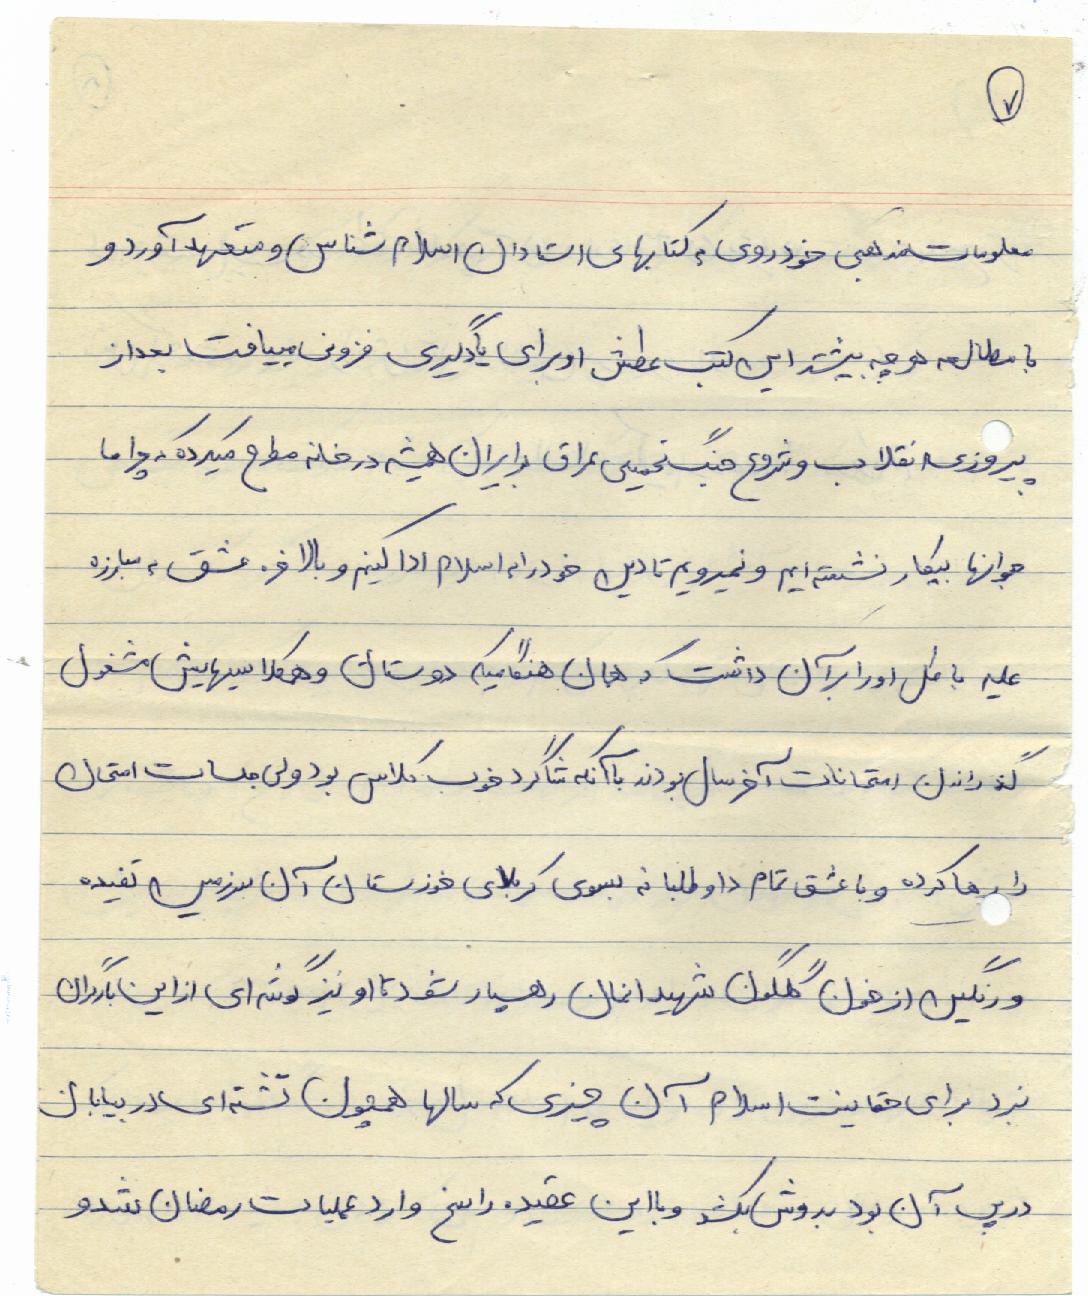 ۷
معلومات مذهبی خود روی به کتابهای استادان اسلام شناس و متعهد آورد و
با مطالعه هر چه بیشتر این کتب عطش او برای یادگیری فزونی مییافت بعد از
پیروزی انقلاب و شروع جنگ تحمیلی عراق بر ایران همیشه در خانه مطرح میکرد که چرا ما
جوانها بیکار نشسته ایم و نمیرویم تا دین خود را به اسلام ادا کنیم و بالاخره عشق به مبارزه
علیه باطل او را بر آن داشت که همان هنگامیکه دوستان و همکلاسیهایش مشغول
گذراندن امتحانات آخر سال بودند با آنکه شاگرد خوب کلاس بود ولی جلسات امتحان
را رها کرده و با عشق تمام داوطلبانه بسوی کربلای خوزستان آن سرزمین تفیده
و رنگین از خون گلگون شهیدانمان رهسپار شد تا او نیز گوشه ای از این بار گران
نبرد برای حقانیت اسلام آن چیزی که سالها همچون تشنه ای در بیابان
در پی آن بود بدوش بکشد و با این عقیده راسخ وارد عملیات رمضان شد و